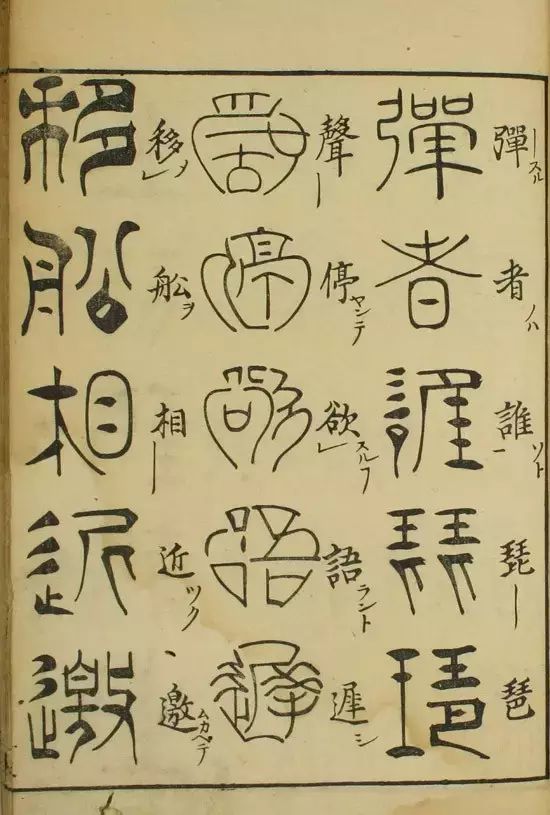 彈ースル 者ノハ 誰ソト 琵ー 琶
彈者誰琵琶
聲ー 停ヤンテ 欲スル 語ラント 遲シ
聲停欲語遲
移 舩ヲ 相ー 近ツク 邀ムカヘテ
移舩相近邀